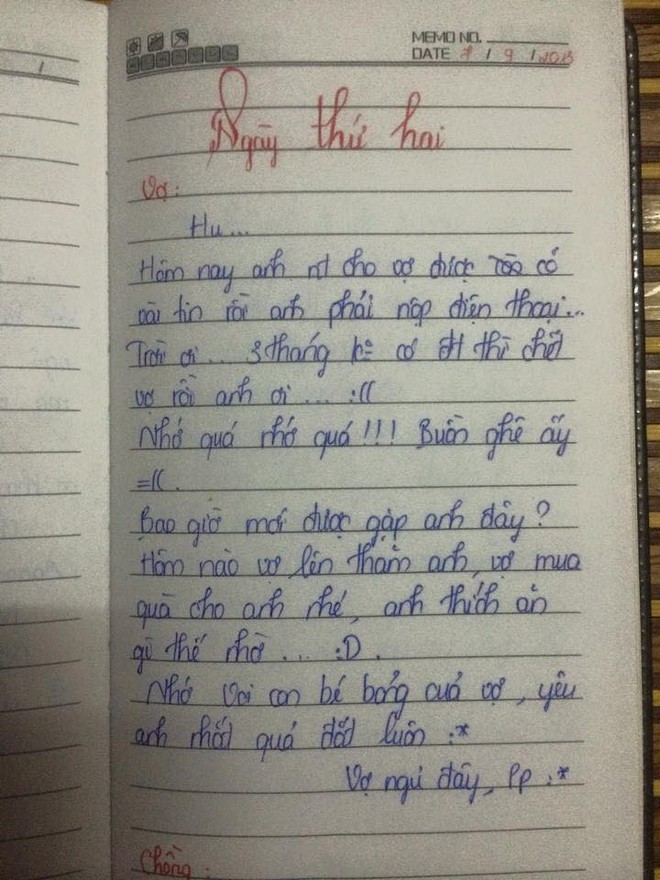 MEMO NO.
DATE 7 / 9 / 2013
Ngày thứ hai
Vợ:
Hu...
Hôm nay anh nt cho vợ được có
vài tin rồi anh phải nộp điện thoại...
Trời ơi... 3 tháng k có đt thì chết
vợ rồi anh ơi ... :((
Nhớ quá nhớ quá!!! Buồn ghê ấy
=((.
Bao giờ mới được gặp anh đây?
Hôm nào vợ lên thăm anh, vợ mua
quà cho anh nhé, anh thích ăn
gì thế nhờ ... :D.
Nhớ voi con bé bỏng của vợ, yêu
anh nhất quả đất luôn :*
Vợ ngủ đây, Pp :*
Chồng: